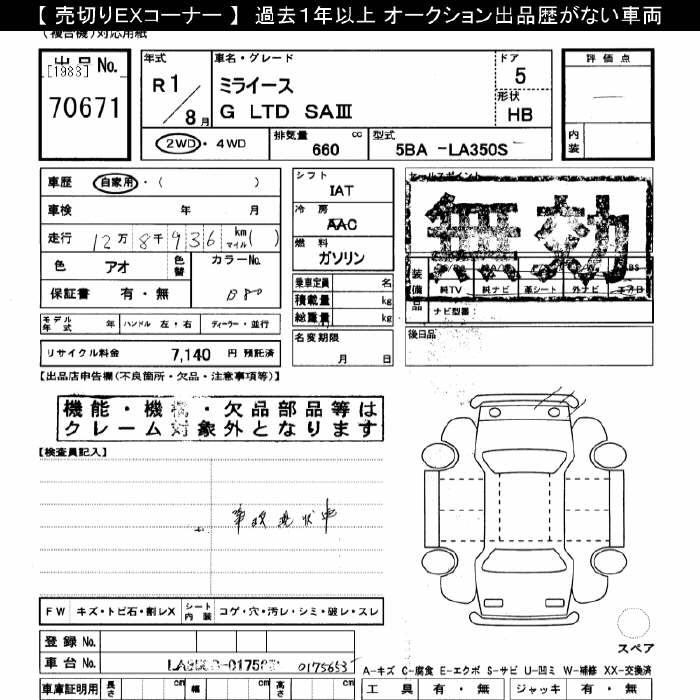 【 売切りEXコーナー 】 過去1年以上 オークション出品歴がない車両
(複合機)対応用紙
出品 No.
[1983]
70671
年式
R 1 / 8 月
車名・グレード
ミライース
G LTD SAⅢ
ドア
5
形状
HB
評価点
内装
2WD・4WD
排気量 cc
660
型式
5BA -LA350S
車歴 自家用・( )
車検 年 月
走行 12万 8千 936 km マイル ( )
色 アオ 色替 カラーNo.
保証書 有・無 B80
モデル年式 年 ハンドル 左・右 ディーラー・並行
リサイクル料金 7,140 円 預託済
シフト
IAT
冷房
AAC
燃料
ガソリン
乗車定員 名
積載量 kg
総重量 kg
名変期限
月 日
セールスポイント
無効
装備品
純TV 純ナビ 革シート 外ナビ エアB
ナビ型番
後日品
【出品店申告欄(不良箇所・欠品・注意事項等)】
機能・機構・欠品部品等は
クレーム対象外となります
【検査員記入】
事故現状車
FW キズ・トビ石・割レX シート内装 コゲ・穴・汚レ・シミ・破レ・スレ
登録 No.
車台 No. 0175653
スペア
A-キズ C-腐食 E-エクボ S-サビ U-凹ミ W-補修 XX-交換済
車庫証明用 長さ cm 幅 cm 高さ cm
工具 有・無 ジャッキ 有・無